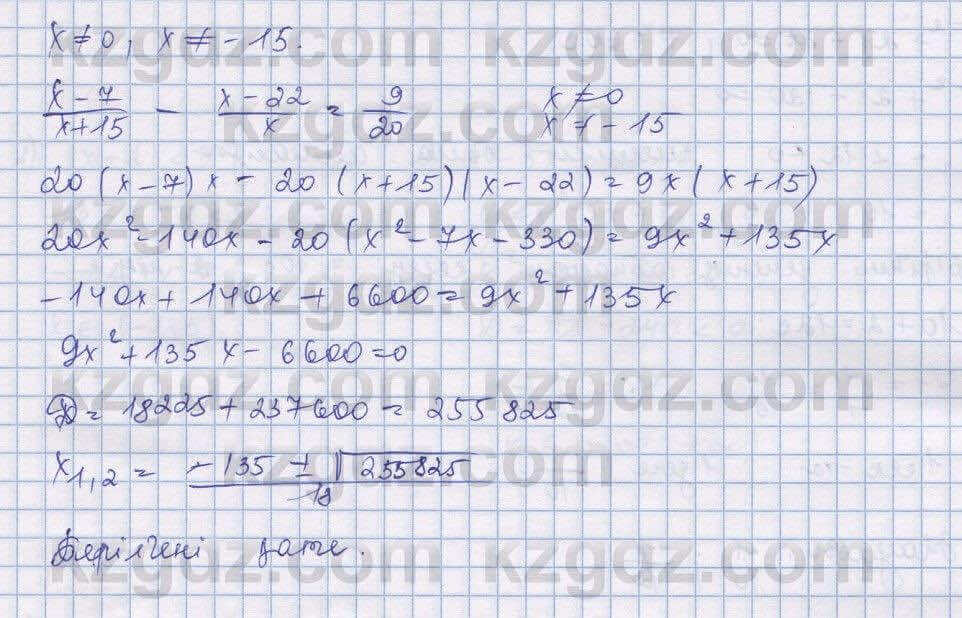 x ≠ 0, x ≠ -15.
(x-7)/(x+15) - (x-22)/x = 9/20    x ≠ 0
x ≠ -15
20(x-7)x - 20(x+15)(x-22) = 9x(x+15)
20x² - 140x - 20(x² - 7x - 330) = 9x² + 135x
-140x + 140x + 6600 = 9x² + 135x
9x² + 135x - 6600 = 0
D = 18225 + 237600 = 255825
x1,2 = (-135 ± √255825)/18
Берілгені қате.
kzgdz.com